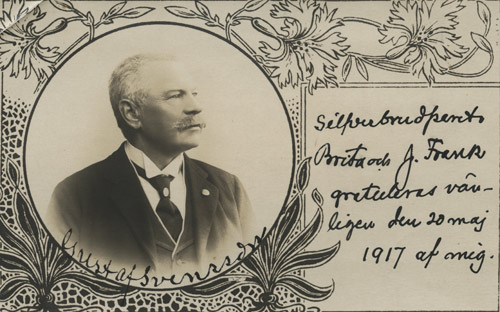 Silfverbrudparet
Brita och J. Frank
gratuleras vän-
ligen den 20 maj
1917 af mig.
Gustaf Svensson